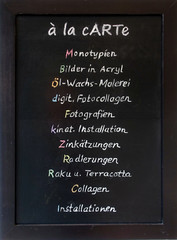 à la cARTe
Monotypien
Bilder in Acryl
Öl-Wachs-Malerei
digit. Fotocollagen
Fotografien
kinet. Installation
Zinkätzungen
Radierungen
Raku u. Terracotta
Collagen
Installationen